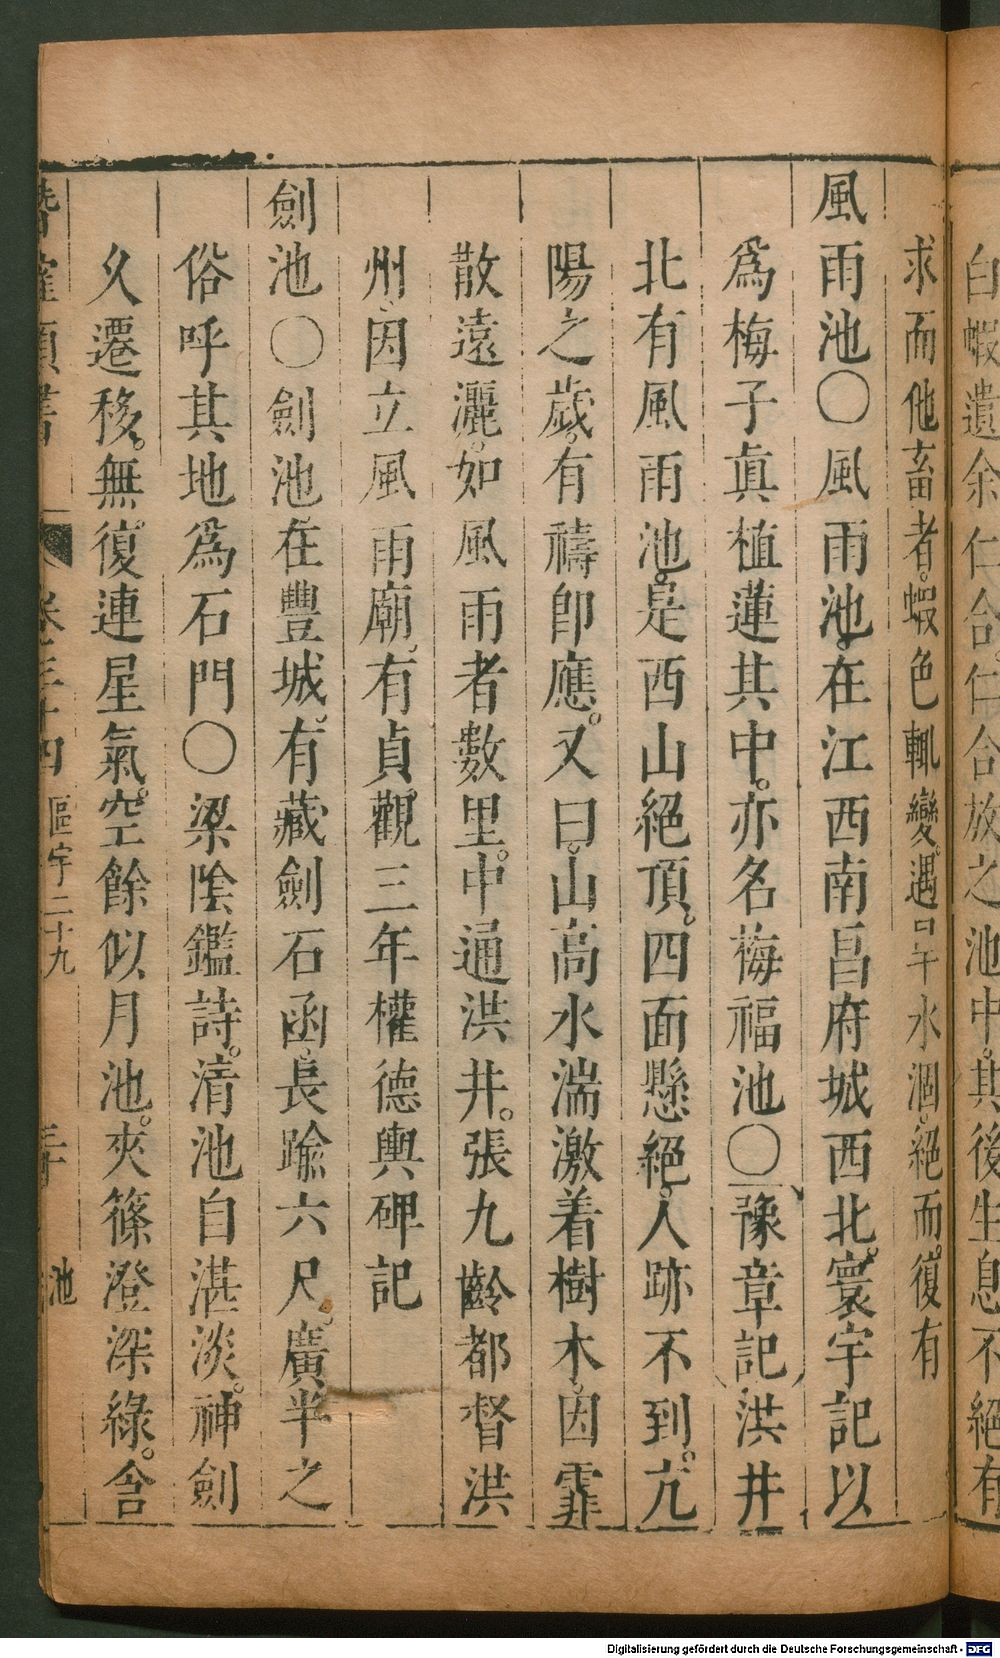 白蝦遺余仁合仁合放之池中其後生息不絕有
求而他畜者蝦色輒變遇日午水涸絕而復有
風雨池○風雨池在江西南昌府城西北寰宇記以
爲梅子眞植蓮其中亦名梅福池○豫章記洪井
北有風雨池是西山絕頂四面懸絕人跡不到亢
陽之歲有禱卽應又曰山高水湍激着樹木因霏
散遠灑如風雨者數里中通洪井張九齡都督洪
州因立風雨廟有貞觀三年權德輿碑記
劍池○劍池在豐城有藏劍石函長踰六尺廣半之
俗呼其地爲石門○梁陰鑑詩清池自湛淡神劍
久遷移無復連星氣空餘似月池夾篠澄深綠含
潛確類書 卷三十四 區宇二十九 三十 池
Digitalisierung gefördert durch die Deutsche Forschungsgemeinschaft - DFG